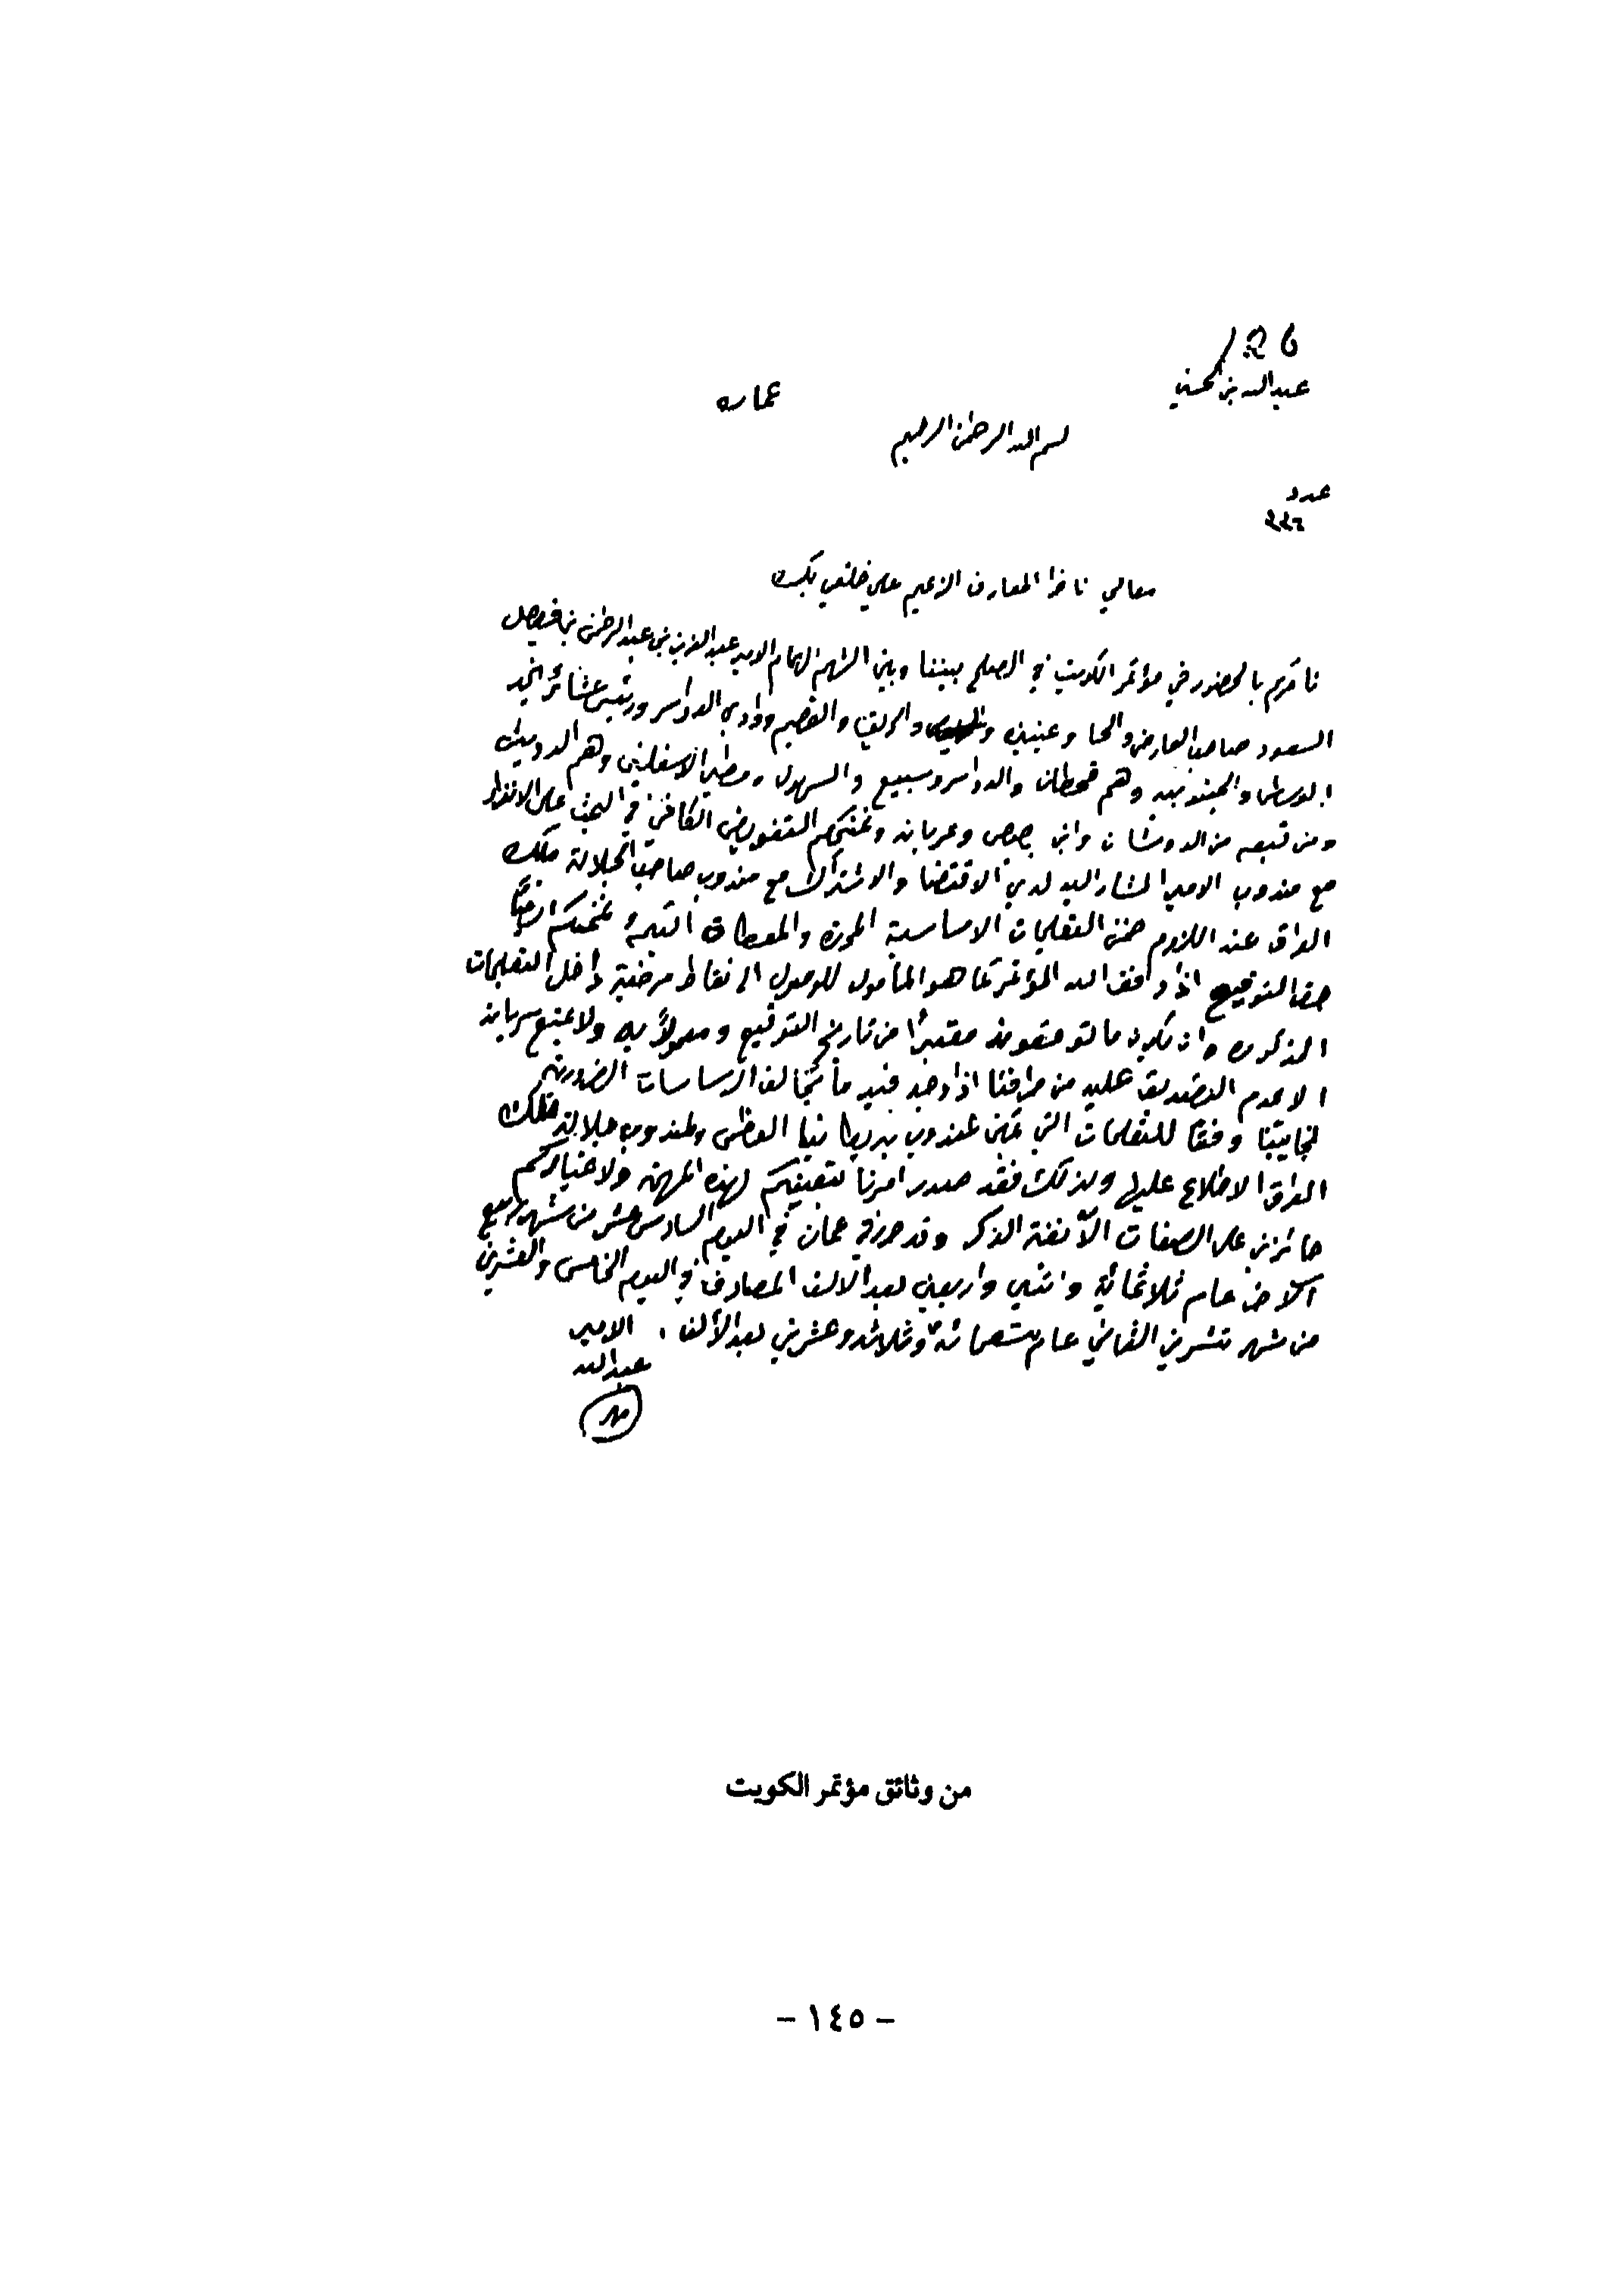 126
عبدالله بن الحسين
عمان
بسم الله الرحمن الرحيم
عدد
معالي ناظر المعارف الزعيم علي خلقي بك
نأمركم بالحضور في مؤتمر الكويت في الصلح بيننا وبين الشهم الهمام الامير عبد العزيز بن عبد الرحمن بن فيصل
السعود صاحب العارض والحسا وعنيزه والحريق والقصيم ووادي الدواسر ورئيس عشائر نجد
الوسطى والجنوبيه وهم قحطان والدواسر وسبيع والسهول ومطير الاسفلين وهم الدويش
ومن تبعه من الدوشان وابن بصيص وعربانه ونمنحكم التفويض الكافي في البحث على الانفراد
مع مندوب الامير المشار اليه لدى الاقتضا والاشتراك مع مندوب صاحب الجلالة ملك
العراق عند اللزوم ضمن التعليمات الاساسية المحرره والمعطاة اليكم نمنحكم ايضًا
حق التوقيع اذا وفق الله المؤتمر كما هو المأمول للوصول الى نقاط مرضية داخل التعليمات
المذكوره وان يكون ما توقعونه معتبرًا من تاريخ التوقيع ومعمولاً به ولا يمنع سريانه
الا عدم التصديق عليه من طرفنا اذا وجد فيه ما يخالف الاساسات الضرورية
لجانبنا وفقا للتعليمات التي يمكن لمندوب بريطانيا العظمى ولمندوب جلالة ملك
العراق الاطلاع عليها ولذلك فقد صدر امرنا بتعيينكم لهذه المهمة ولاختياركم
حائزين على الصفات الآنفة الذكر وقد حرر في عمان في اليوم السادس عشر من شهر ربيع
الآخر عام ثلاثمائة واثنين واربعين بعد الالف المصادف في اليوم الخامس والعشرين
من شهر تشرين الثاني عام تسعمائة وثلاثة وعشرين بعد الألف . الامير
عبدالله
من وثائق مؤتمر الكويت
- ١٤٥ -